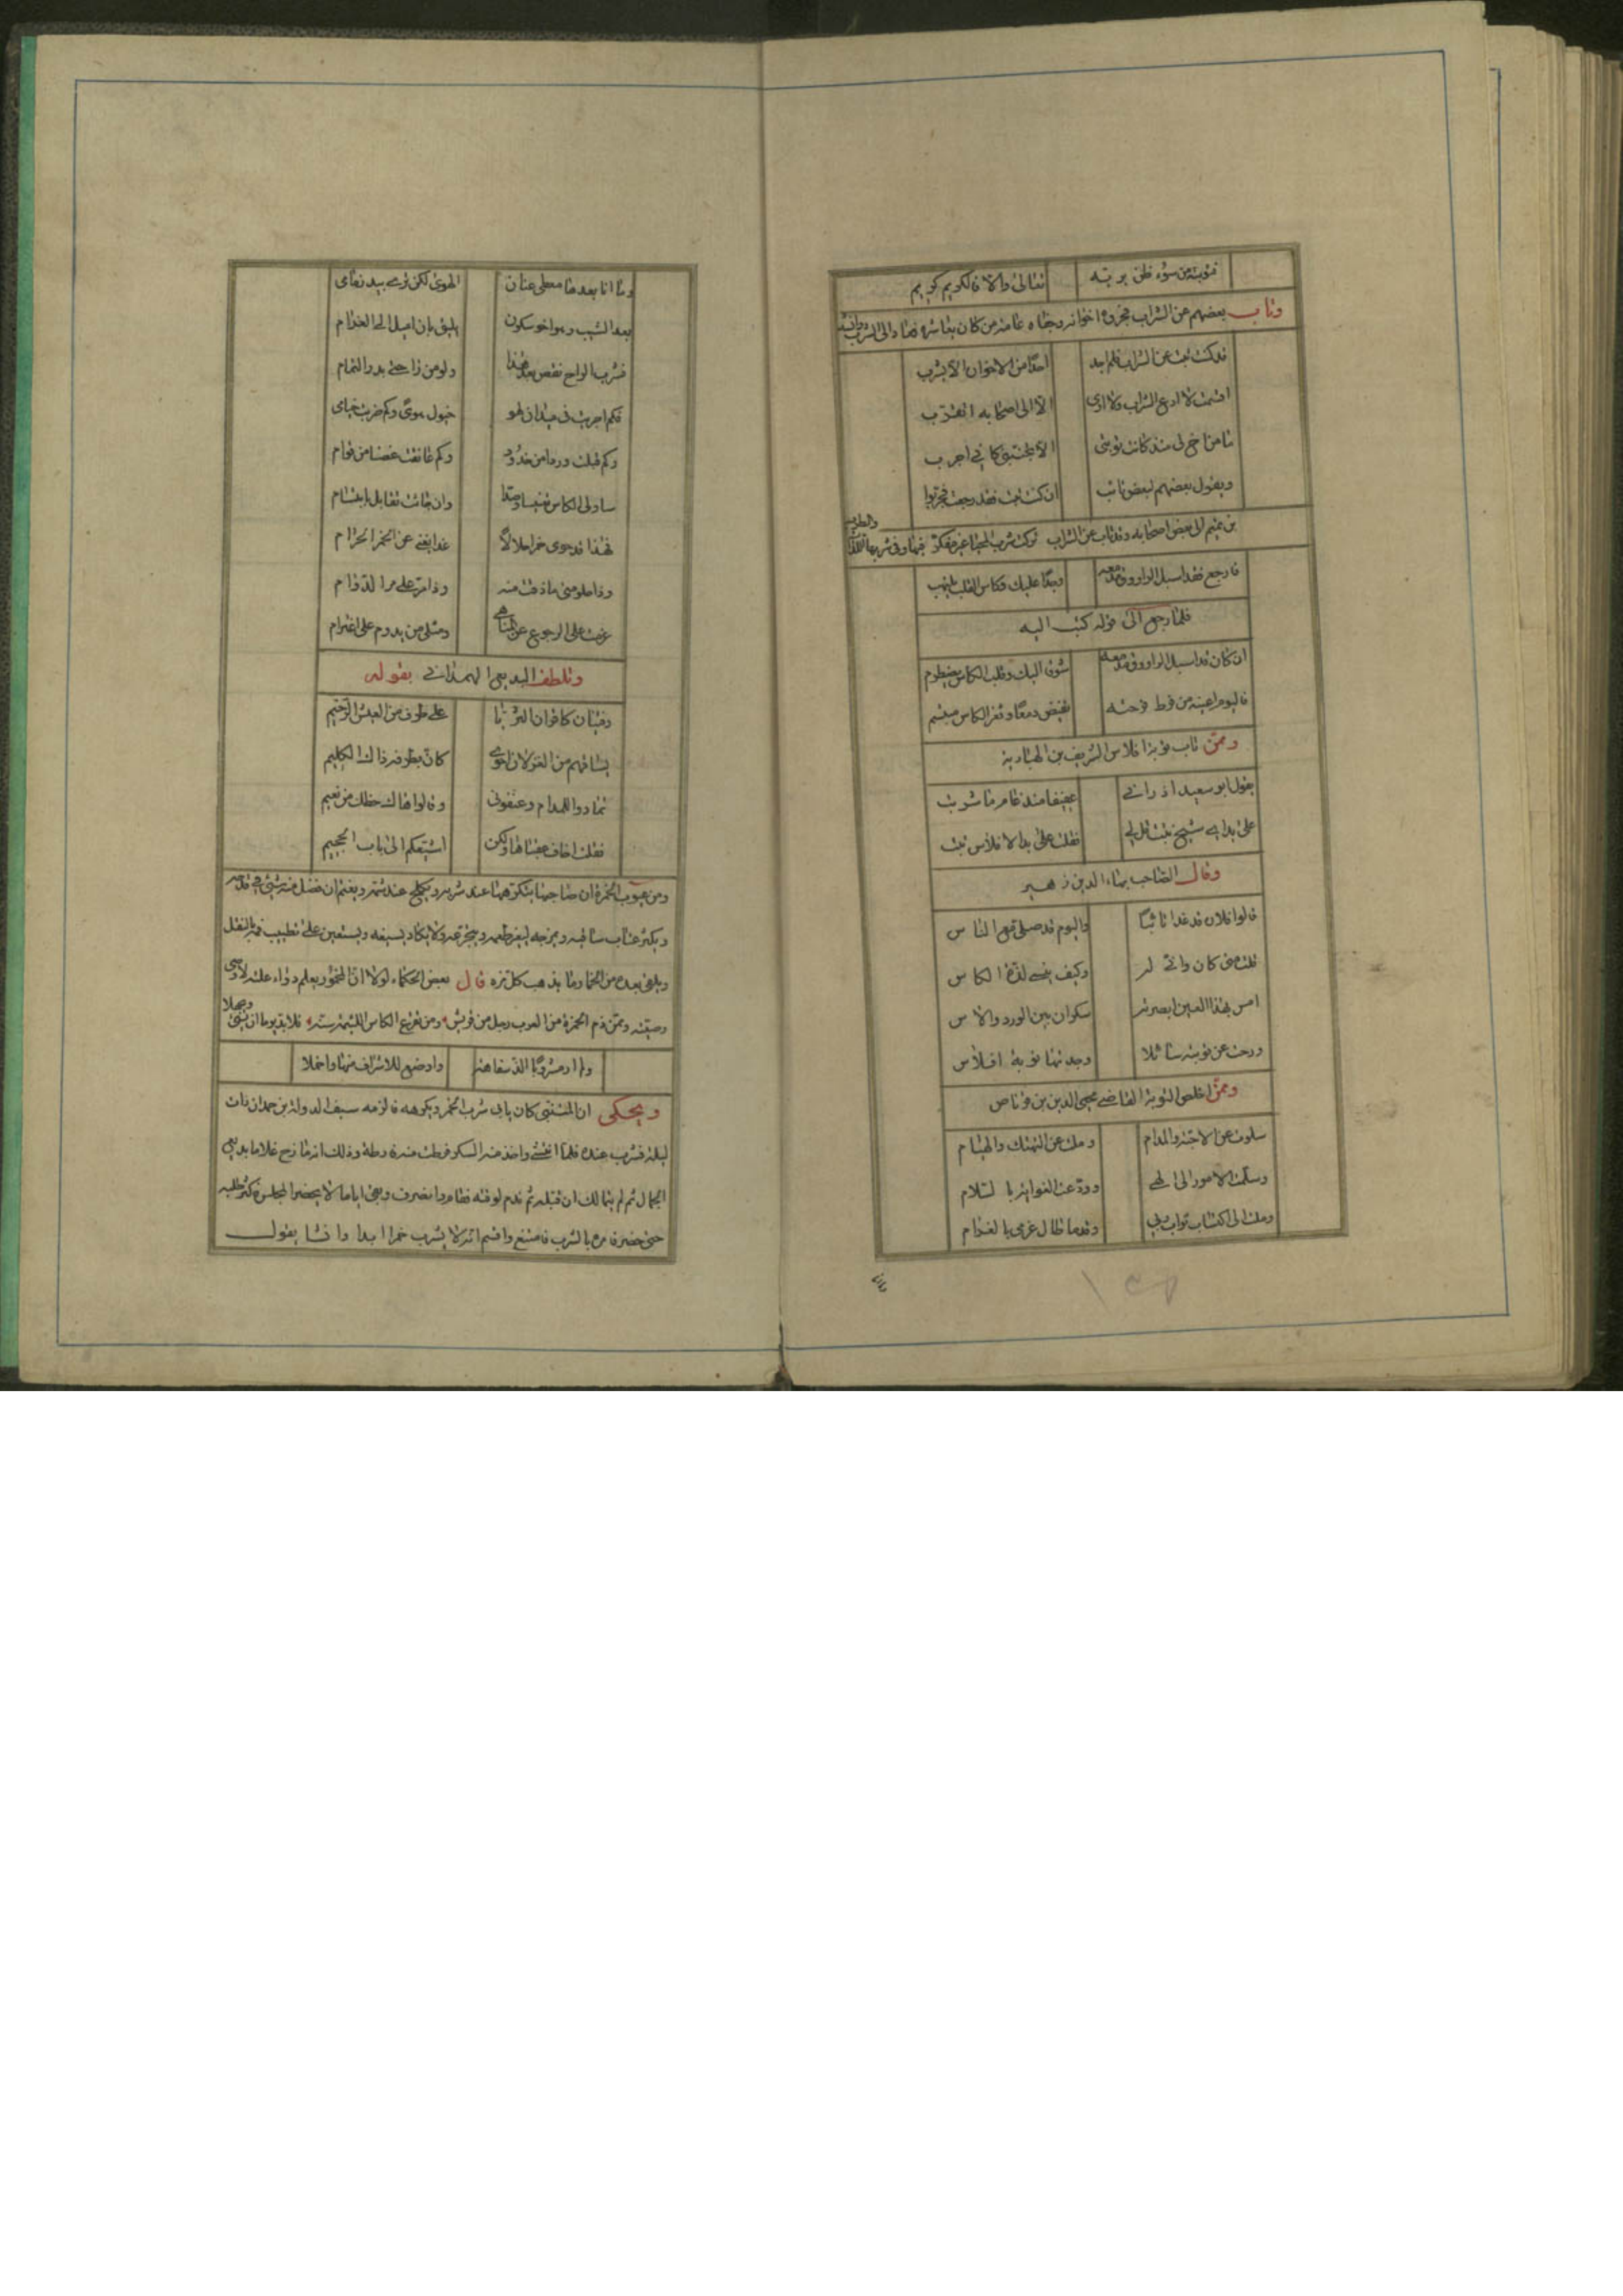 فتوبته من سوء ظن بربه تعالى والا فالكريم كريم
وتاب بعضهم عن الشراب فهجروه اخوانه وجفاه عامة من كان يعاشره فعاد الى الشرب وانشد
قد كنت تبت عن الشراب فلم اجد احدًا من الاخوان الا يشرب
اقسمت لا ادع الشراب ولا ارى الا الى اصحابه اتقرب
ما من اخ لى منذ كانت توبتى الا تجنبنى كانى اجرب
ويقول بعضهم لبعض تائب ان كنت تبت فقد رجعت فجربوا
بن تميم الى بعض اصحابه وقد تاب عن الشراب تركت شرب الحميا غير مفكر فيها وفى شربها
فارجع فقد اسبل الراووق مدمعه وجدًا عليك وكاس القلب يلتهب
فلما رجع الى قوله كتب اليه
ان كان قد اسبل الراووق مدمعه شوقا اليك وقلب الكاس يضطرم
فاليوم اعينه من فرط فرحته تفيض دمعًا وثغر الكاس مبتسم
وممن تاب توبة افلاس الشريف بن الهبارية
يقول ابو سعيد اذ رانى عفيفا منذ عام ما شربت
على يد اى شيخ تبت قل لى فقلت على يد الافلاس تبت
وقال الصاحب بهاء الدين زهير
قالوا فلان قد غدا تائبًا واليوم قد صلى مع الناس
قلت متى كان وانى له وكيف ينسى لذة الكاس
امس بهذا العين ابصرته سكران بين الورد والاس
ورحت عن توبته سائلا وجدتها توبة افلاس
وممن اخلص التوبة القاضى محيى الدين بن قرناص
سلوت عن الاحبة والمدام وملت عن التهتك والهيام
وسلمت الامور الى الهى وودعت الغواية بالسلام
وملت الى اكتساب ثواب ربى وقدما طال عزمى بالغرام
وما انا بعدها معطى عنان الهوى لكن ترى بيد زمامى
بعد الشيب وهو اخو سكون يليق بان اميل الى الغرام
فشرب الراح نقص بعد هذا ولو من راحتى بدر التمام
فكم اجريت فى ميدان لهو خيول هوى وكم ضربت خيامى
وكم قبلت وردا من خدود وكم عانقت غصنا من قوام
سادلى الكاس تعبيسا وصدا وان جائت تقابل بابتسام
فهذا قد حوى خمرا حلالًا غدا يغنى عن الخمر الحرام
وذا حلو متى ما ذقت منه وذا مر على مر الدوام
عزمت على الرجوع عن المناهى ومثلى من يدوم على اعتزام
وتلطف البديعى الهمدانى بقوله
وفتيان كاقران الثريا على طرف من العيش الرخيم
يساقيهم من الغزلان احوى كان بطرفه ذاك الكليم
تمادوا للمدام وعنفونى وقالوا هاك حظك من نعيم
فقلت اخاف عقباها ولكن اشيعكم الى باب الجحيم
ومن عيوب الخمرة ان صاحبها يتكرهها عند شربه ويكلح عند شمه ويغتم ان فضل منه شيئى فى قدحه
ويكثر عتاب ساقيه ويمزجه ليغير طعمه ويتجرعه ولا يكاد يسيغه ويستعين على تطبيب فمه بالنقل
ويلقى بعده من الخمار وما يذهب كل تره قال بعض الحكماء لولا ان المخمور يعلم دواء علته لاوصى
وصيته وممن ذم الخمرة من العرب رجل من قريش ومن تقرع الكاس اللئيمة سنه فلا بد يوما ان يسئ ويجهلا
ولم ار مشروبًا الذ سفاهة واوضع للاشراف منها واخملا
ويحكى ان المتنبى كان يابى شرب الخمر ويكرهه فالزمه سيف الدولة بن حمدان ذات
ليلة فشرب عنده فلما انتشى واخذ منه السكر فرطت منه فرطة وذلك انه مازح غلاما بديعى
الجمال ثم لم يتمالك ان قبله ثم ندم لوقته فقام وانصرف وبقى اياما لا يحضر المجلس فكثر طلبه
حتى حضر فامره بالشرب فامتنع واقسم انه لا يشرب خمرا ابدا وانشا يقول